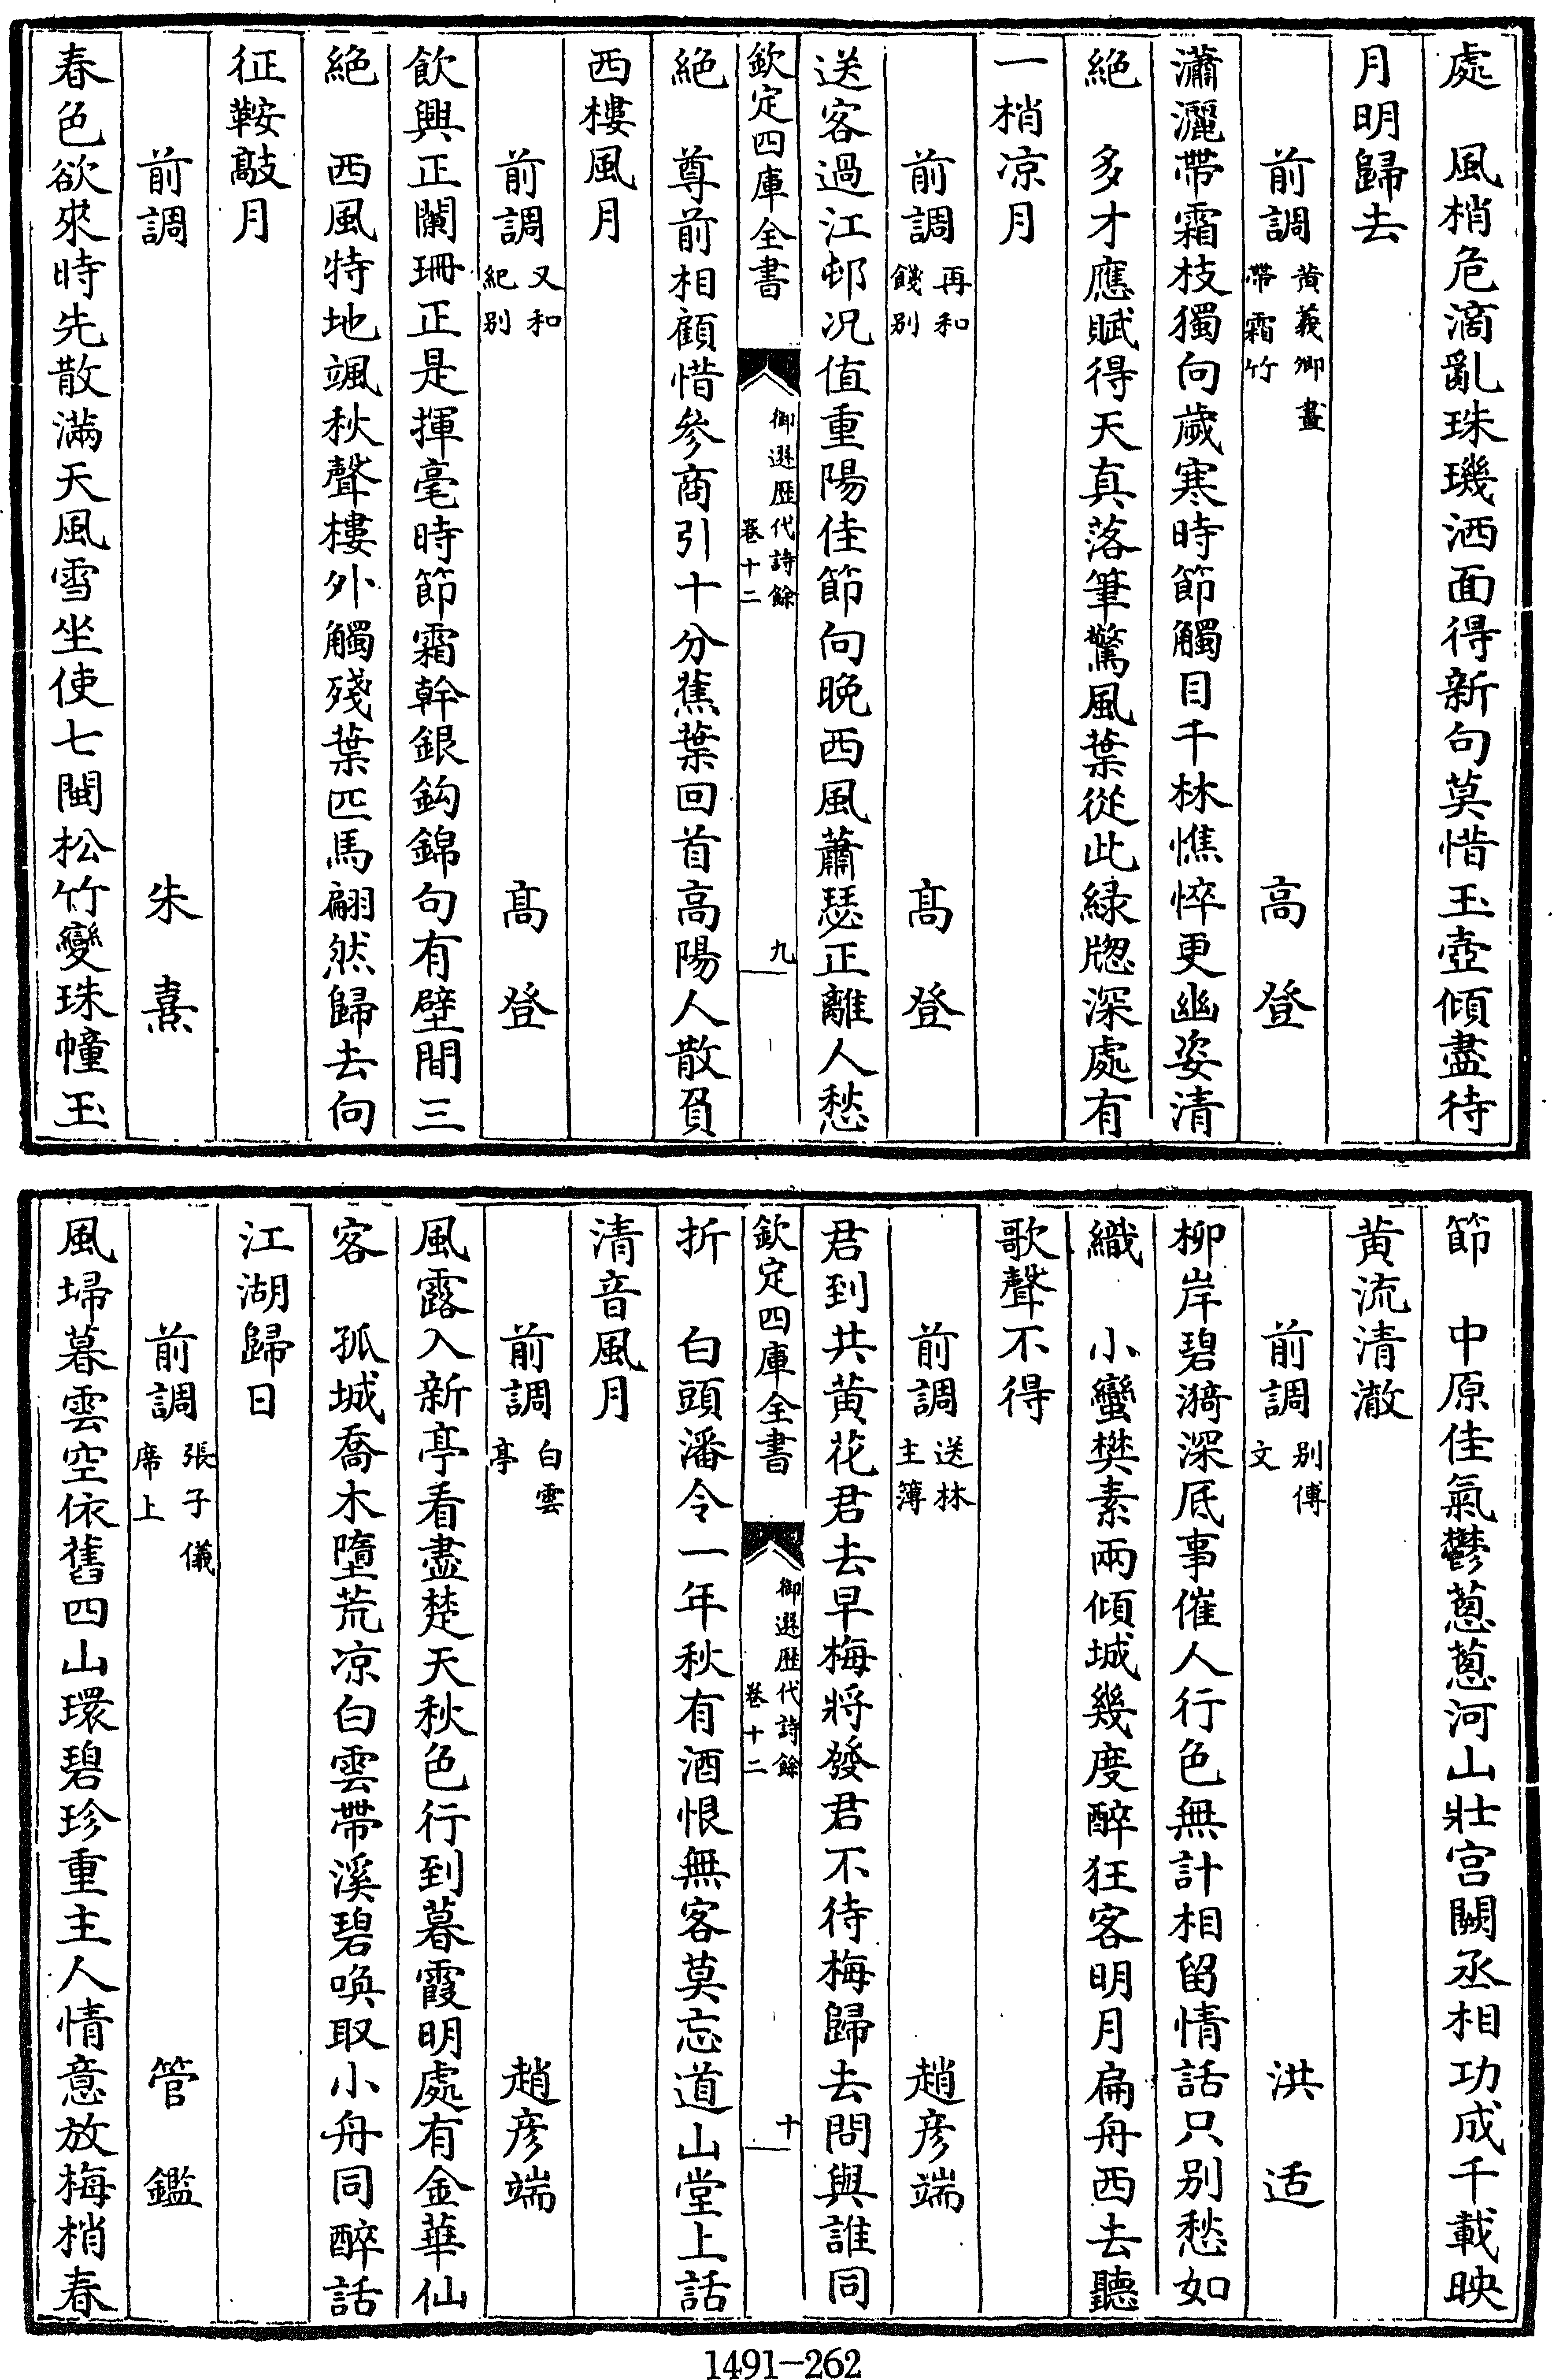 處　風梢危滴亂珠璣洒面得新句莫惜玉壺傾盡待
月明歸去
前調 黄義卿畫帶霜竹　高登
瀟灑帶霜枝獨向歲寒時節觸目千林憔悴更幽姿清
絶　多才應賦得天真落筆驚風葉從此緑牕深處有
一梢凉月
前調 再和餞别　高登
送客過江邨况值重陽佳節向晚西風蕭瑟正離人愁
欽定四庫全書　御選歷代詩餘卷十二　九
絶　尊前相顧惜參商引十分蕉葉回首高陽人散負
西樓風月
前調 又和紀别　高登
飲興正闌珊正是揮毫時節霜幹銀鈎錦句有壁間三
絶　西風特地颯秋聲樓外觸殘葉匹馬翩然歸去向
征鞍敲月
前調　朱熹
春色欲來時先散滿天風雪坐使七閩松竹變珠幢玉
節　中原佳氣鬱葱葱河山壯宫闕丞相功成千載映
黄流清澈
前調 别傅文　洪适
柳岸碧漪深底事催人行色無計相留情話只别愁如
織　小蠻樊素兩傾城幾度醉狂客明月扁舟西去聽
歌聲不得
前調 送林主簿　趙彦端
君到共黄花君去早梅將發君不待梅歸去問與誰同
欽定四庫全書　御選歷代詩餘卷十二　十
折　白頭潘令一年秋有酒恨無客莫忘道山堂上話
清音風月
前調 白雲亭　趙彦端
風露入新亭看盡楚天秋色行到暮霞明處有金華仙
客　孤城喬木墮荒凉白雲帶溪碧喚取小舟同醉話
江湖歸日
前調 張子儀席上　管鑑
風埽暮雲空依舊四山環碧珍重主人情意放梅梢春
1491-262